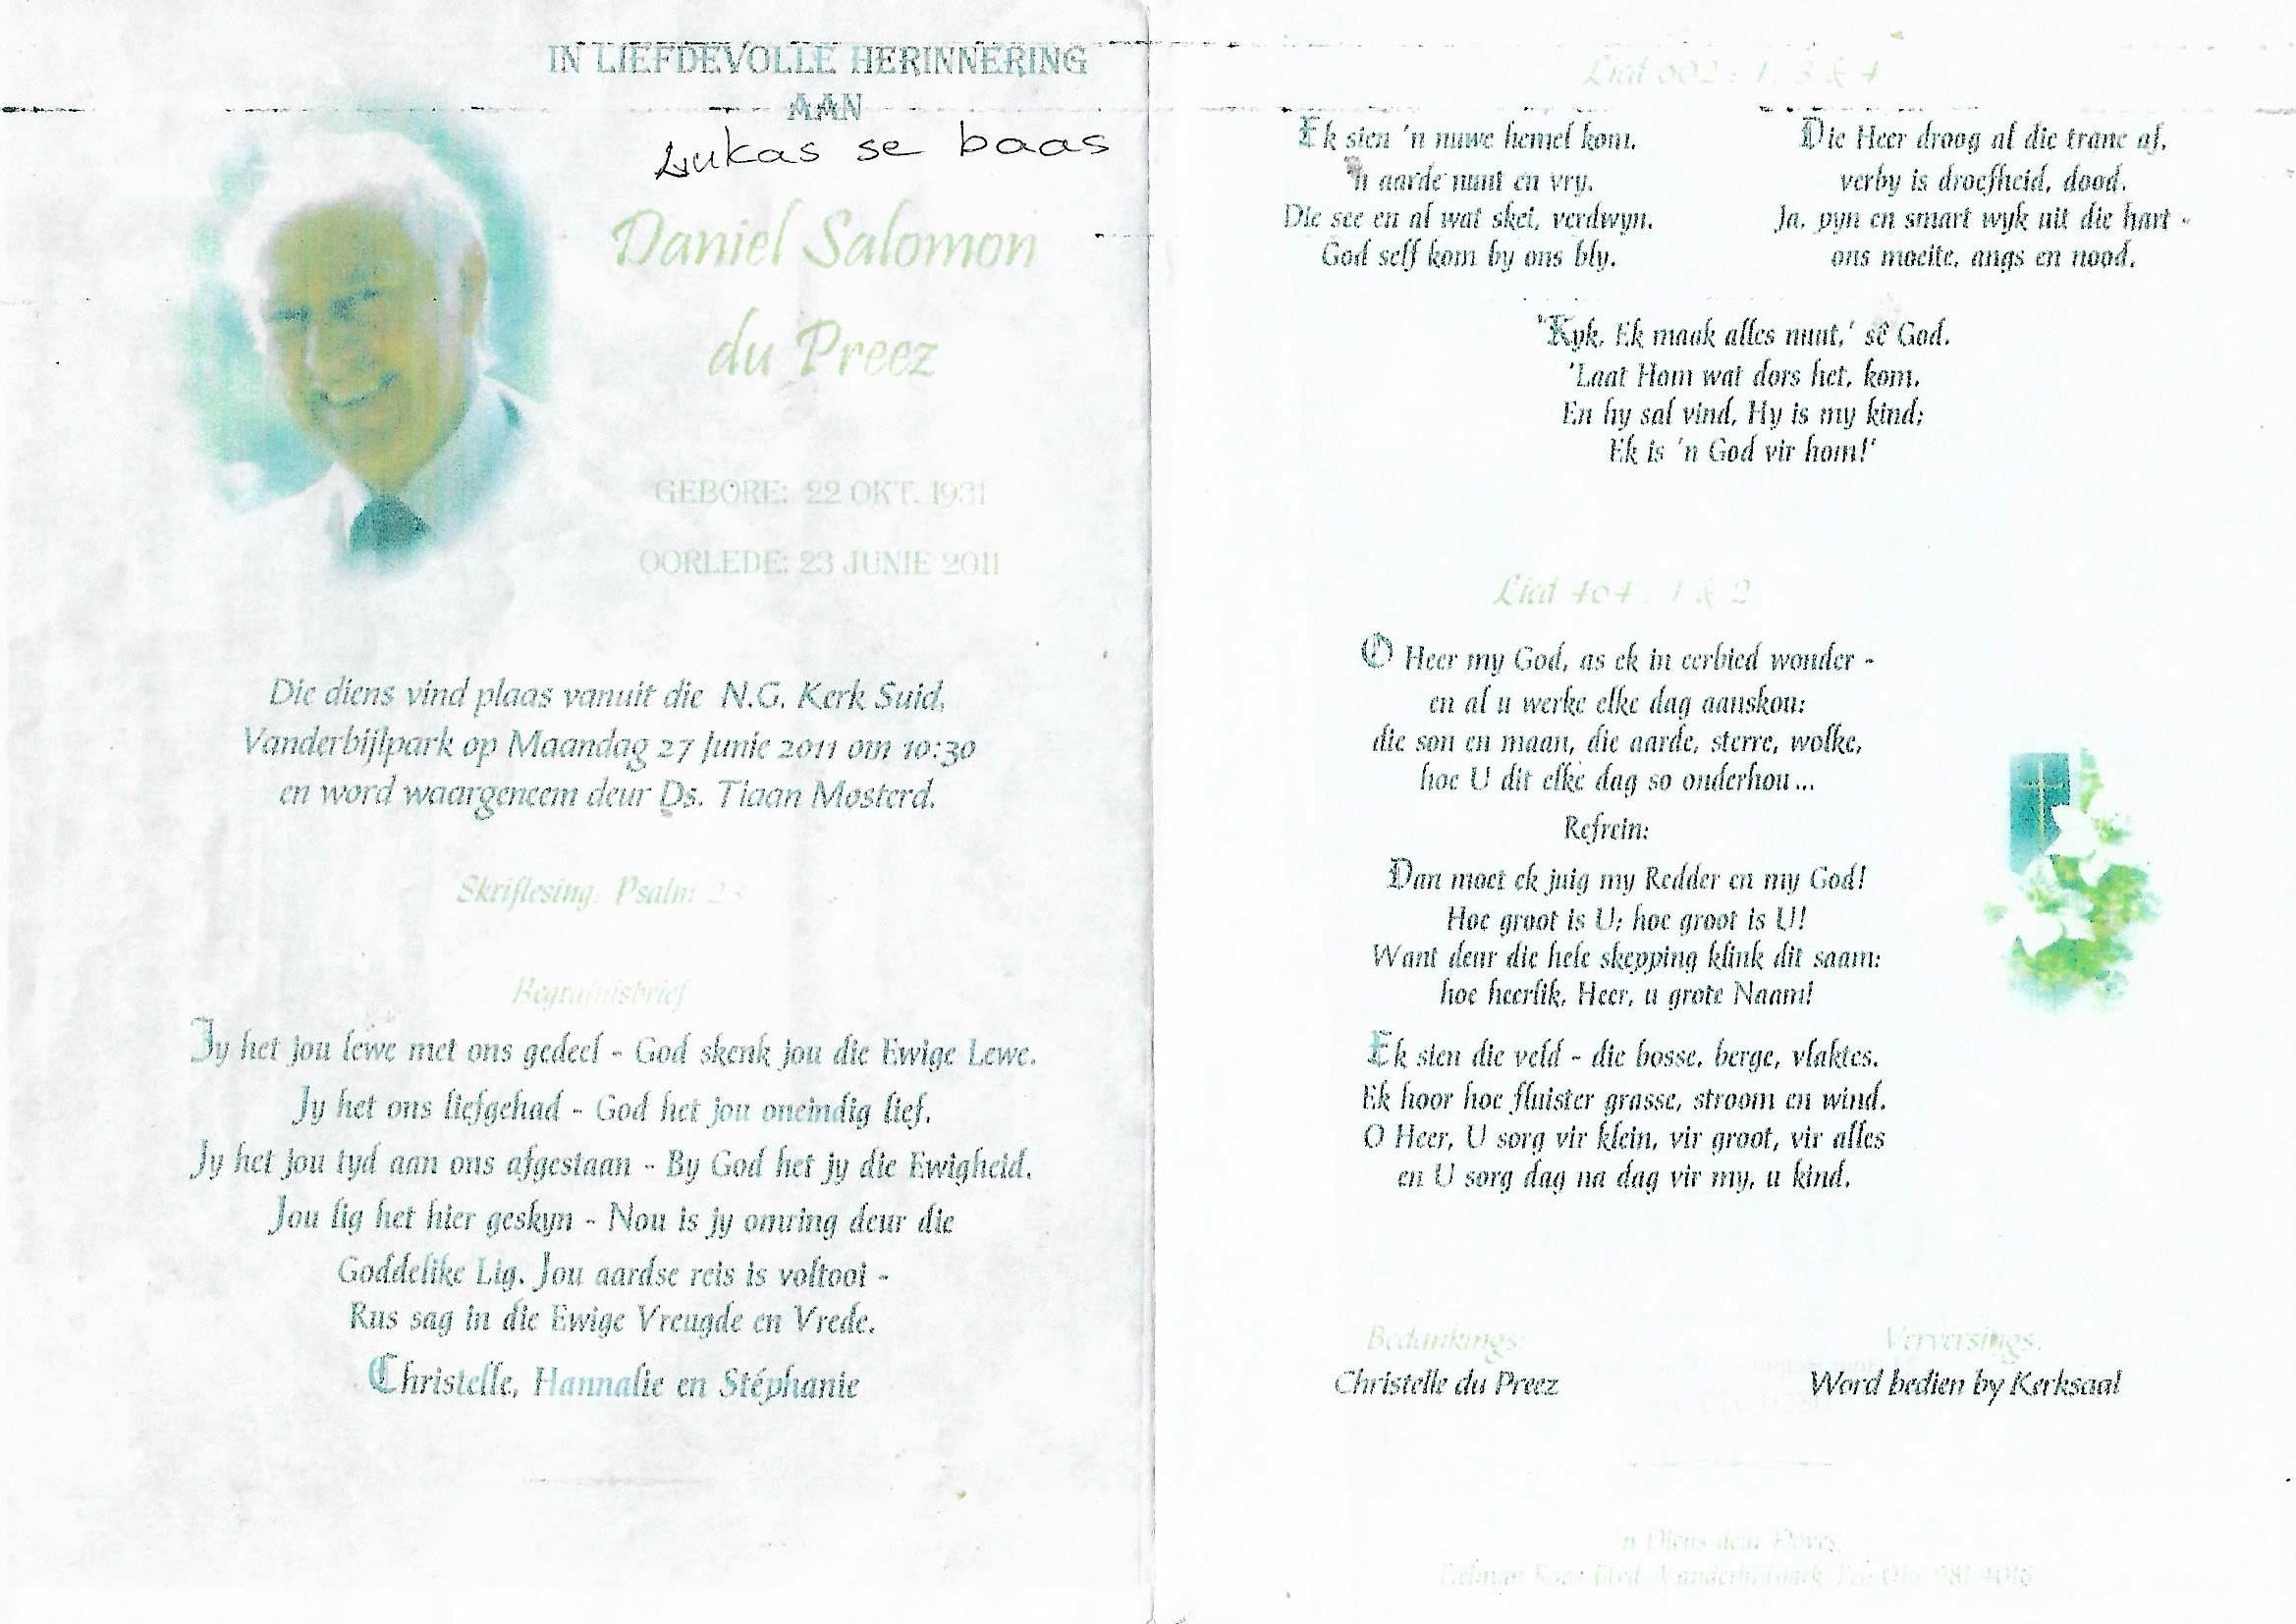 IN LIEFDEVOLLE HERINNERING
AAN
Lukas se baas
Daniel Salomon
du Preez
GEBORE: 22 OKT. 1931
OORLEDE: 23 JUNIE 2011
Die diens vind plaas vanuit die N.G. Kerk Suid,
Vanderbijlpark op Maandag 27 Junie 2011 om 10:30
en word waargeneem deur Ds. Tiaan Mosterd.
Skriflesing: Psalm 23
Begrafnisbrief
Jy het jou lewe met ons gedeel - God skenk jou die Ewige Lewe.
Jy het ons liefgehad - God het jou oneindig lief.
Jy het jou tyd aan ons afgestaan - By God het jy die Ewigheid.
Jou lig het hier geskyn - Nou is jy omring deur die
Goddelike Lig. Jou aardse reis is voltooi -
Rus sag in die Ewige Vreugde en Vrede.
Christelle, Hannalie en Stéphanie
Lied 602 : 1, 3 & 4
Ek sien 'n nuwe hemel kom,
'n aarde nuut en vry.
Die see en al wat skei, verdwyn.
God self kom by ons bly.
Die Heer droog al die trane af,
verby is droefheid, dood.
Ja, pyn en smart wyk uit die hart -
ons moeite, angs en nood.
"Kyk, Ek maak alles nuut,' sê God.
'Laat Hom wat dors het, kom.
En hy sal vind, Hy is my kind;
Ek is 'n God vir hom!'
Lied 464 : 1 & 2
O Heer my God, as ek in eerbied wonder -
en al u werke elke dag aanskou:
die son en maan, die aarde, sterre, wolke,
hoe U dit elke dag so onderhou...
Refrein:
Dan moet ek juig my Redder en my God!
Hoe groot is U; hoe groot is U!
Want deur die hele skepping klink dit saam:
hoe heerlik, Heer, u grote Naam!
Ek sien die veld - die bosse, berge, vlaktes.
Ek hoor hoe fluister grasse, stroom en wind.
O Heer, U sorg vir klein, vir groot, vir alles
en U sorg dag na dag vir my, u kind.
Bedankings:
Christelle du Preez
Verversings:
Word bedien by Kerksaal
'n Diens deur Doves,
Blvd. Vanderbijlpark Tel: 016 981 4016